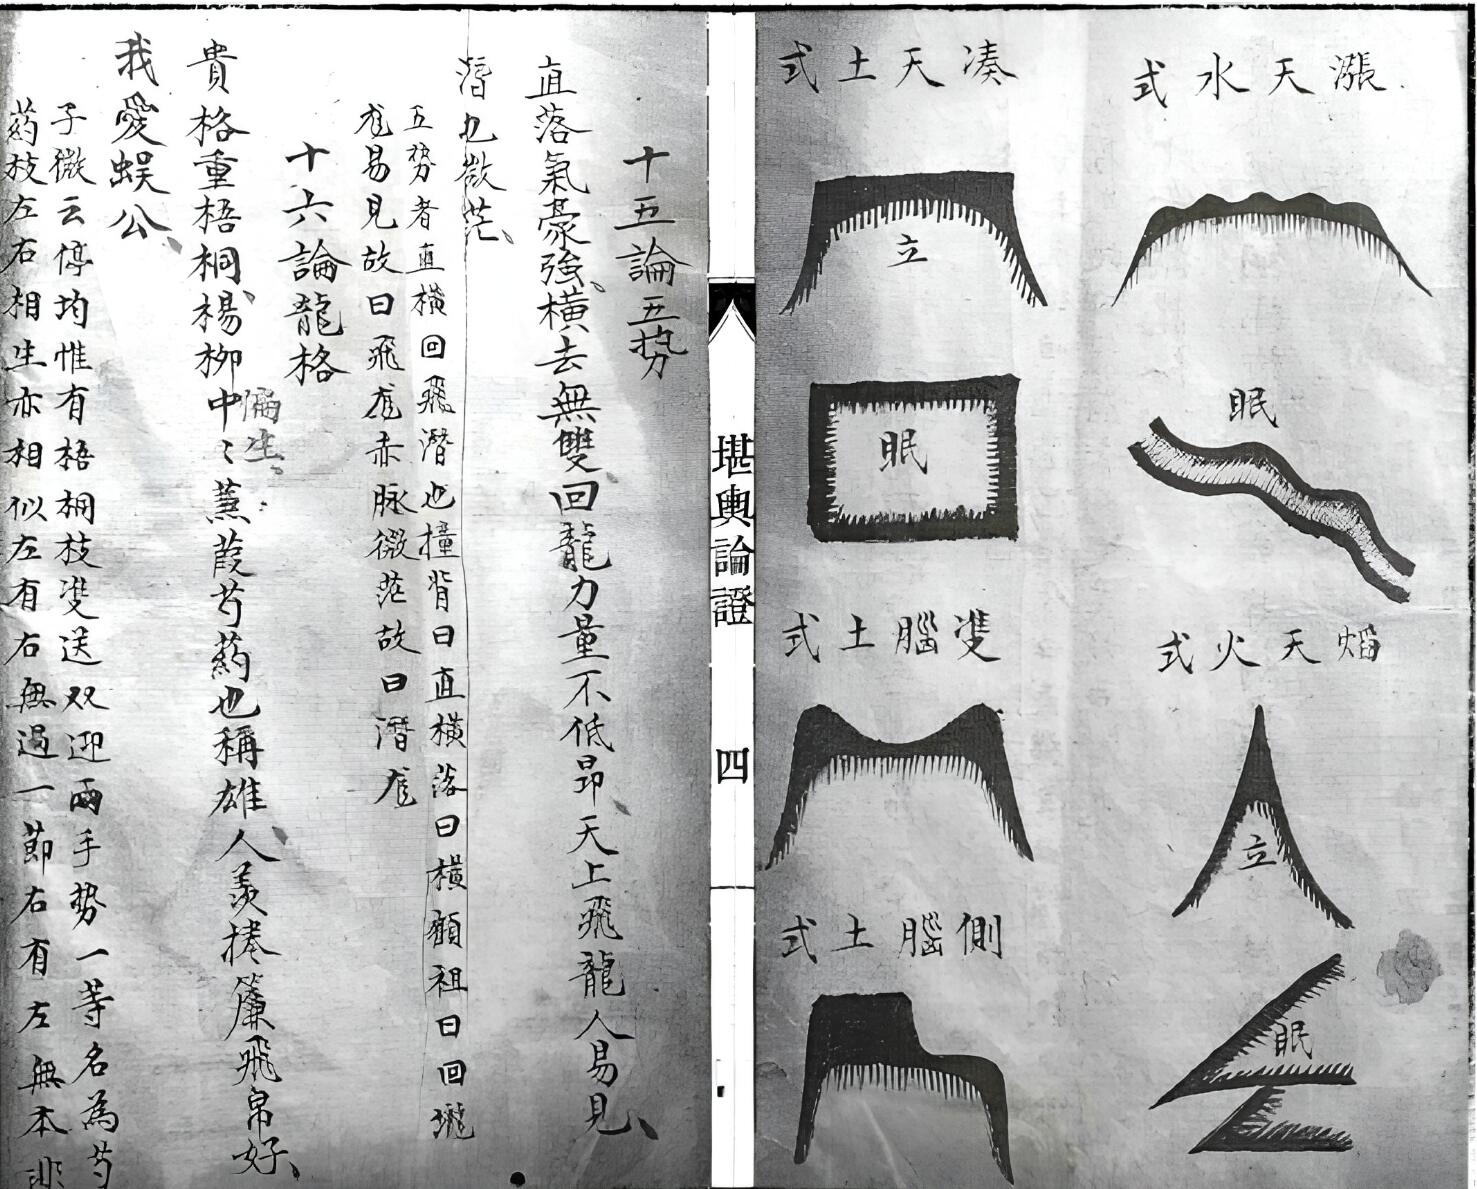 漲天水式
眠
熖天火式
立
眠
凑天土式
立
眠
雙腦土式
側腦土式
堪輿論證
四
十五論五势
直落氣豪強、橫去無雙回龍力量不低昂、天上飛龍人易見、
潛龙微茫、
五势者直横回飛潛也撞背曰直横落曰横顧祖曰回瓏
龙易見故曰飛龙赤脉微茫故曰潛龙
十六論龍格
貴格重梧桐、楊柳中〻蒹葭芍葯也稱雄人羡捲簾飛帛好、
偏生、
我愛蜈公、
子微云停均惟有梧桐枝雙送双迎兩手势一等名為芍
葯枝左右相生亦相似左有右無過一節右有左無本非